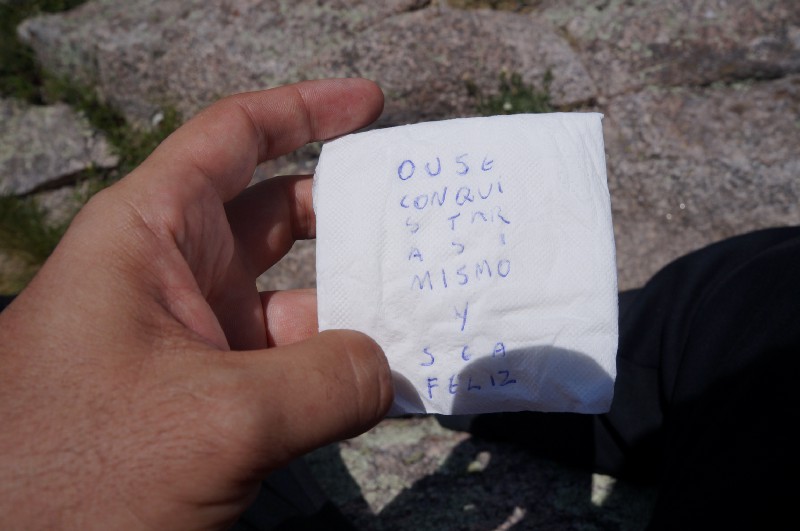 OUSE
CONQUI
STAR
A SI
MISMO
Y
SEA
FELIZ